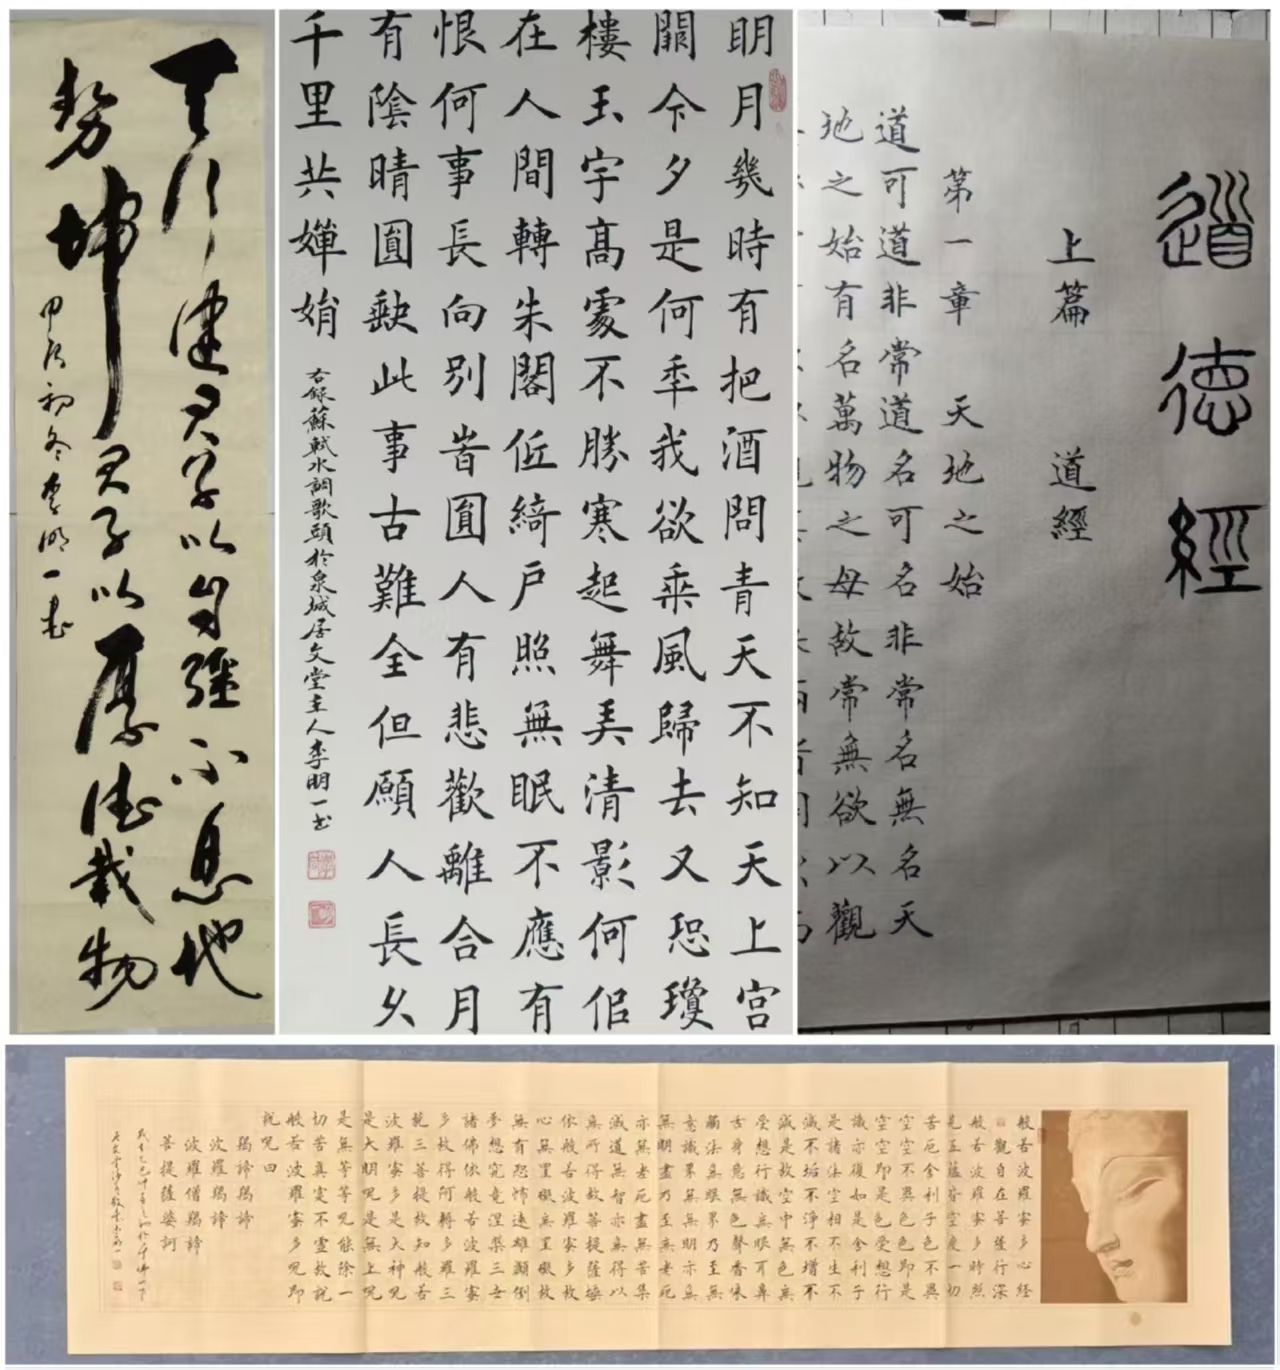 天行健君子以自強不息地
勢坤君子以厚德載物
甲辰初冬李明一書
明月幾時有把酒問青天不知天上宮
闕今夕是何年我欲乘風歸去又恐瓊
樓玉宇高處不勝寒起舞弄清影何佀
在人間轉朱閣低綺戶照無眠不應有
恨何事長向別旹圓人有悲歡離合月
有陰晴圓缺此事古難全但願人長久
千里共嬋娟
右錄蘇軾水調歌頭於泉城居文堂主人李明一書
道德經
上篇 道經
第一章 天地之始
道可道非常道名可名非常名無名天
地之始有名萬物之母故常無欲以觀
般若波羅蜜多心経
觀自在菩薩行深
般若波羅蜜多時照
見五蘊皆空度一切
苦厄舍利子色不異
空空不異色色即是
空空即是色受想行
識亦復如是舍利子
是諸法空相不生不
滅不垢不淨不增不
減是故空中無色無
受想行識無眼耳鼻
舌身意無色聲香味
觸法無眼界乃至無
意識界無無明亦無
無明盡乃至無老死
亦無老死盡無苦集
滅道無智亦無得以
無所得故菩提薩埵
依般若波羅蜜多故
心無罣礙無罣礙故
無有恐怖遠離顛倒
夢想究竟涅槃三世
諸佛依般若波羅蜜
多故得阿耨多羅三
藐三菩提故知般若
波羅蜜多是大神咒
是大明咒是無上咒
是無等等咒能除一
切苦真實不虛故說
般若波羅蜜多咒即
說咒曰
揭諦揭諦
波羅揭諦
波羅僧揭諦
菩提薩婆訶